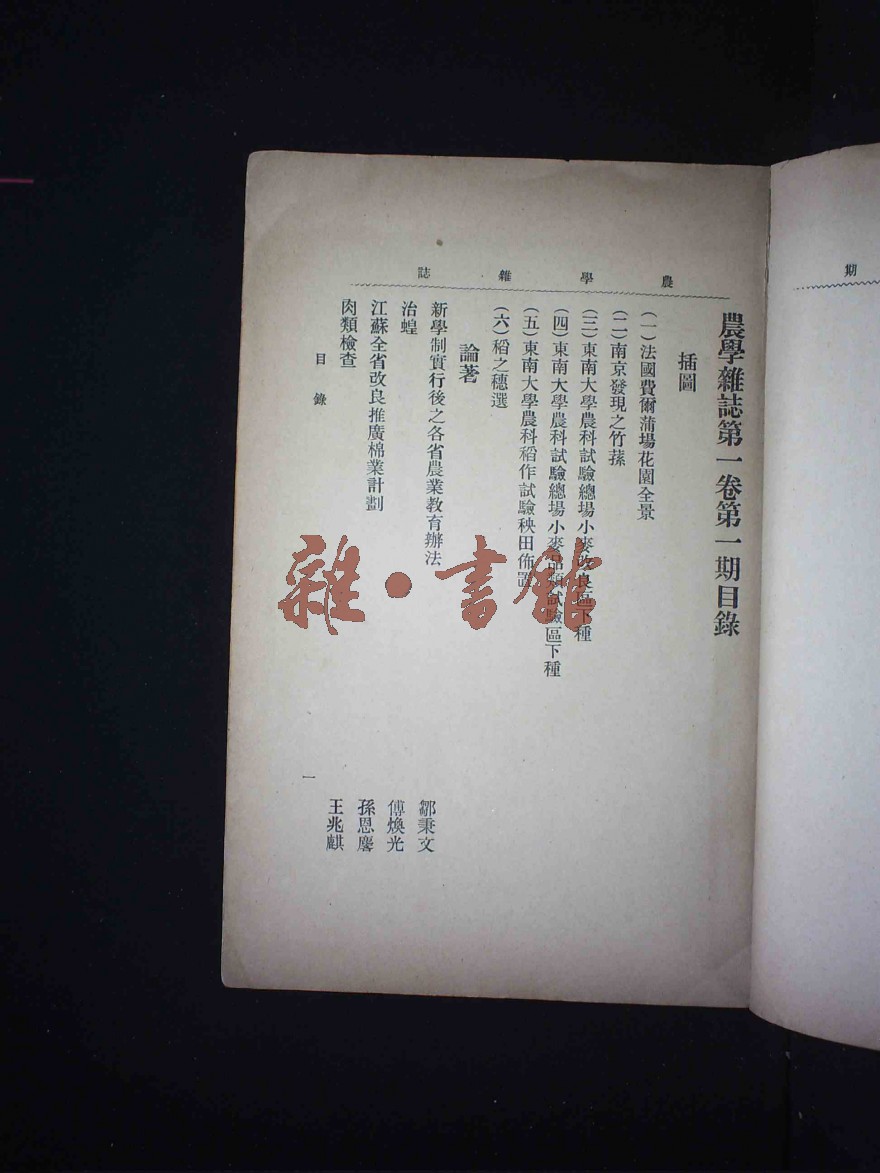 農學雜誌
農學雜誌第一卷第一期目錄
插圖
(一)法國費爾蒲場花園全景
(二)南京發現之竹蓀
(三)東南大學農科試驗總場小麥改良區下種
(四)東南大學農科試驗總場小麥品類試驗區下種
(五)東南大學農科稻作試驗秧田佈置
(六)稻之穗選
論著
新學制實行後之各省農業教育辦法 鄒秉文
治蝗 傅煥光
江蘇全省改良推廣棉業計劃 孫恩麐
肉類檢查 王兆麒
目錄
一
期
雜·書館